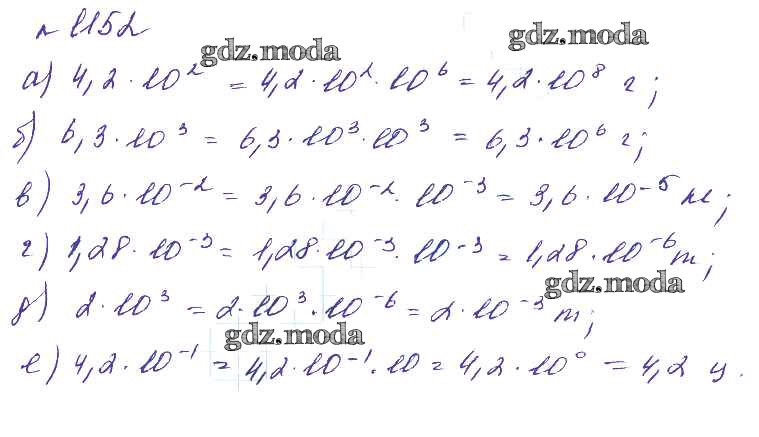 №1152
gdz.moda gdz.moda
а) 4,2·10² = 4,2·10²·10⁶ = 4,2·10⁸ г;
б) 6,3·10³ = 6,3·10³·10³ = 6,3·10⁶ г;
в) 3,6·10⁻² = 3,6·10⁻²·10⁻³ = 3,6·10⁻⁵ кг;
г) 1,28·10⁻³ = 1,28·10⁻³·10⁻³ = 1,28·10⁻⁶ т;
gdz.moda
д) 2·10³ = 2·10³·10⁻⁶ = 2·10⁻³ т;
gdz.moda
е) 4,2·10⁻¹ = 4,2·10⁻¹·10 = 4,2·10⁰ = 4,2 ц.